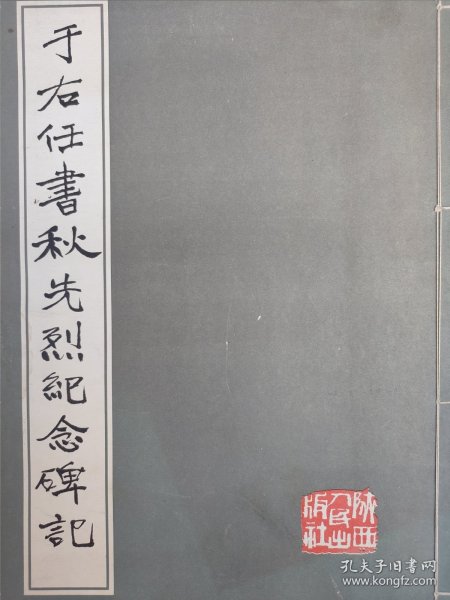 于右任書秋先烈紀念碑記
陝西
人民出
版社
孔夫子旧书网
www.kongfz.com